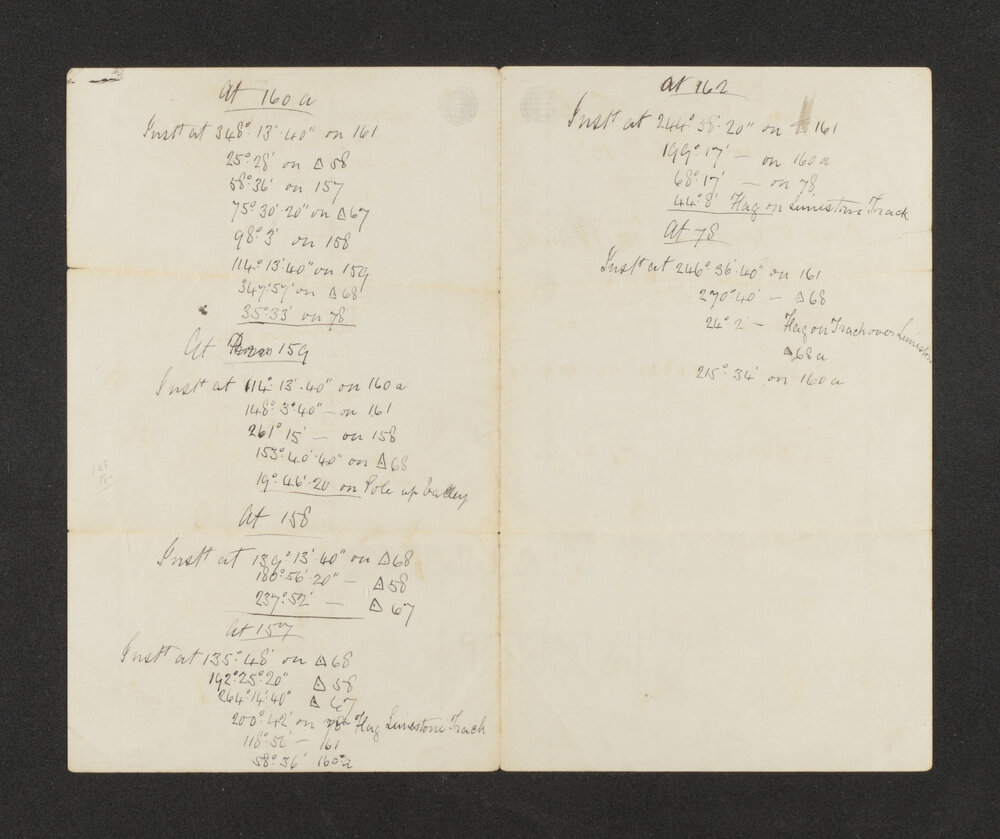 At 160a
Inst<sup>t</sup> at 348°·13'·40" on 161
25°·28' on △ 58
58°·36' on 157
75°·30'·20" on △67
98°·3' on 158
114°·13'·40" on 159
347°·57' on △ 68
35°·33' on 78
At 159
Inst<sup>t</sup> at 114°·13'·40" on 160a
148°·3'·40" – on 161
261° 15' – on 158
153°·40'·40" on △68
19°·46'·20 on Pole up Valley
At 158
Inst<sup>t</sup> at 139°·13'·40" on △68
180°·56'·20" – △58
237°·52' – △ 67
At 157
Inst<sup>t</sup> at 135°·48' on △68
192°·25'·20" △ 58
264°·14'·40" △ 67
200°·42' on Flag Limestone Track
118°·52' – 161
58°·36' 160a
At 162
Inst<sup>t</sup> at 244°·58'·20" on 161
199°·17' – on 160a
68°·17' – on 78
44°·8' Flag on Limestone Track
At 78
Inst<sup>t</sup> at 246°·36'·40" on 161
270°·40' – △68
24°·2' – Flag on Track over
△68a
215°·34' on 160a